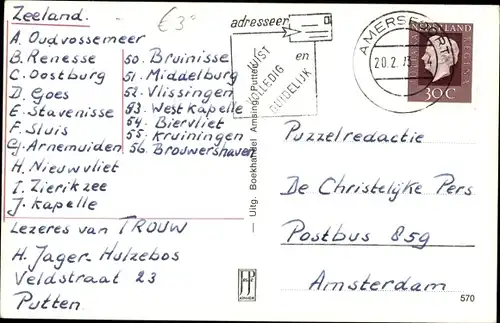 Zeeland.
€3
A. Oudvossemeer
B. Renesse
C. Oostburg
D. Goes
E. Stavenisse
F. Sluis
G. Arnemuiden
H. Nieuwvliet
I. Zierikzee
J. Kapelle
50. Bruinisse
51. Middelburg
52. Vlissingen
53. Westkapelle
54. Biervliet
55. Kruiningen
56. Brouwershaven
Lezeres van TROUW
H. Jager-Hulzebos
Veldstraat 23
Putten
adresseer
JUIST
VOLLEDIG
en
DUIDELIJK
AMERSFOORT
20.2.73
NEDERLAND
30C
Uitg. Boekhandel Amsing, Putten
Puzzelredactie
De Christelijke Pers
Postbus 859
Amsterdam
570